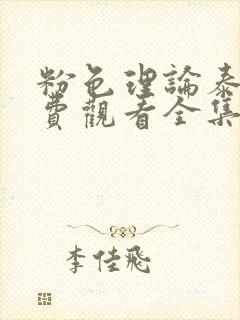 粉色理論泰
費觀看全集
李佳飛